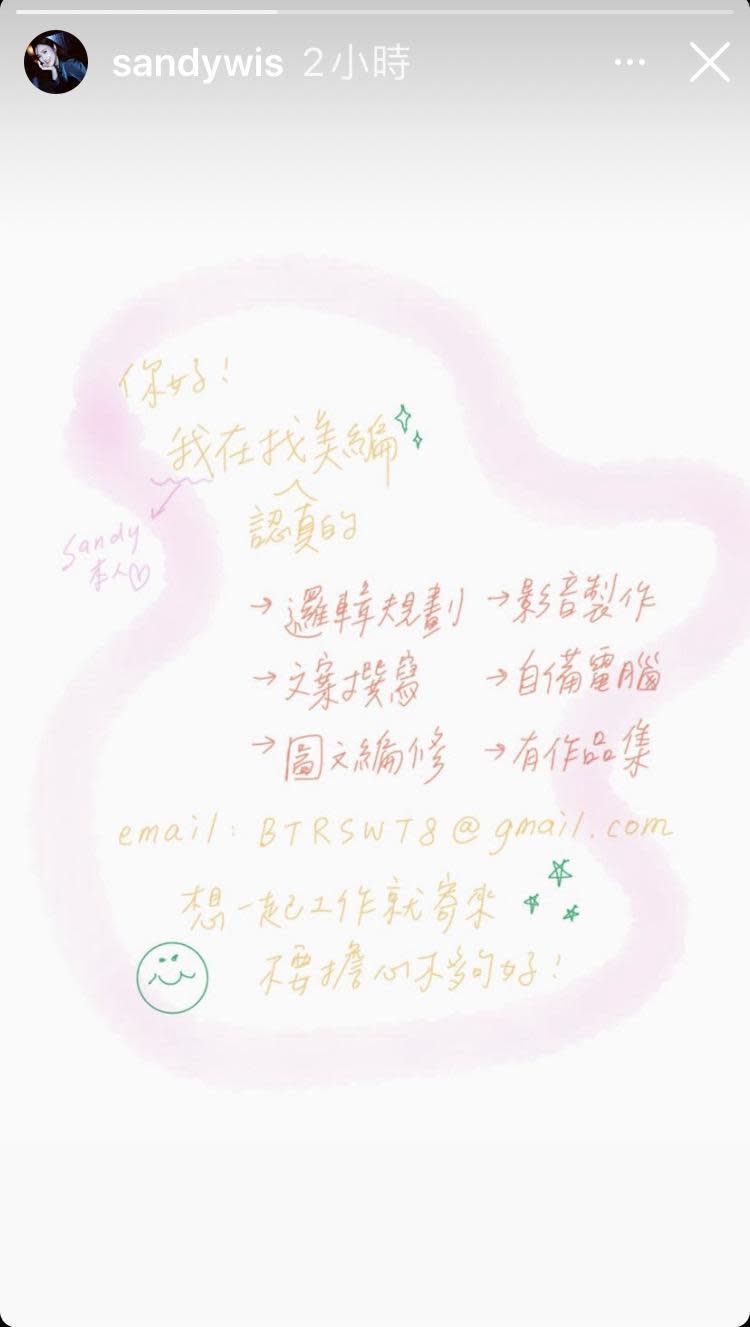 sandywis 2小時
你好!
我在找美編
認真的
Sandy
本人
→邏輯規劃 →影音製作
→文案撰寫 →自備電腦
→圖文編修 →有作品集
email: BTRSWT8@gmail.com
想一起工作就寄來
不要擔心不夠好!